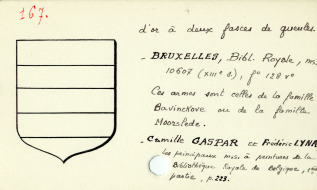 167.
d'or à deux fasces de gueules.
- BRUXELLES, Bibl. Royale, ms.
10607 (XIIIe s.), f° 128 v°
Ces armes sont celles de la famille
Bavinckove ou de la famille
Moorslede.
- Camille GASPAR et Frédéric LYNA
Les principaux mss. à peintures de la
Bibliothèque Royale de Belgique,
partie, p. 223.